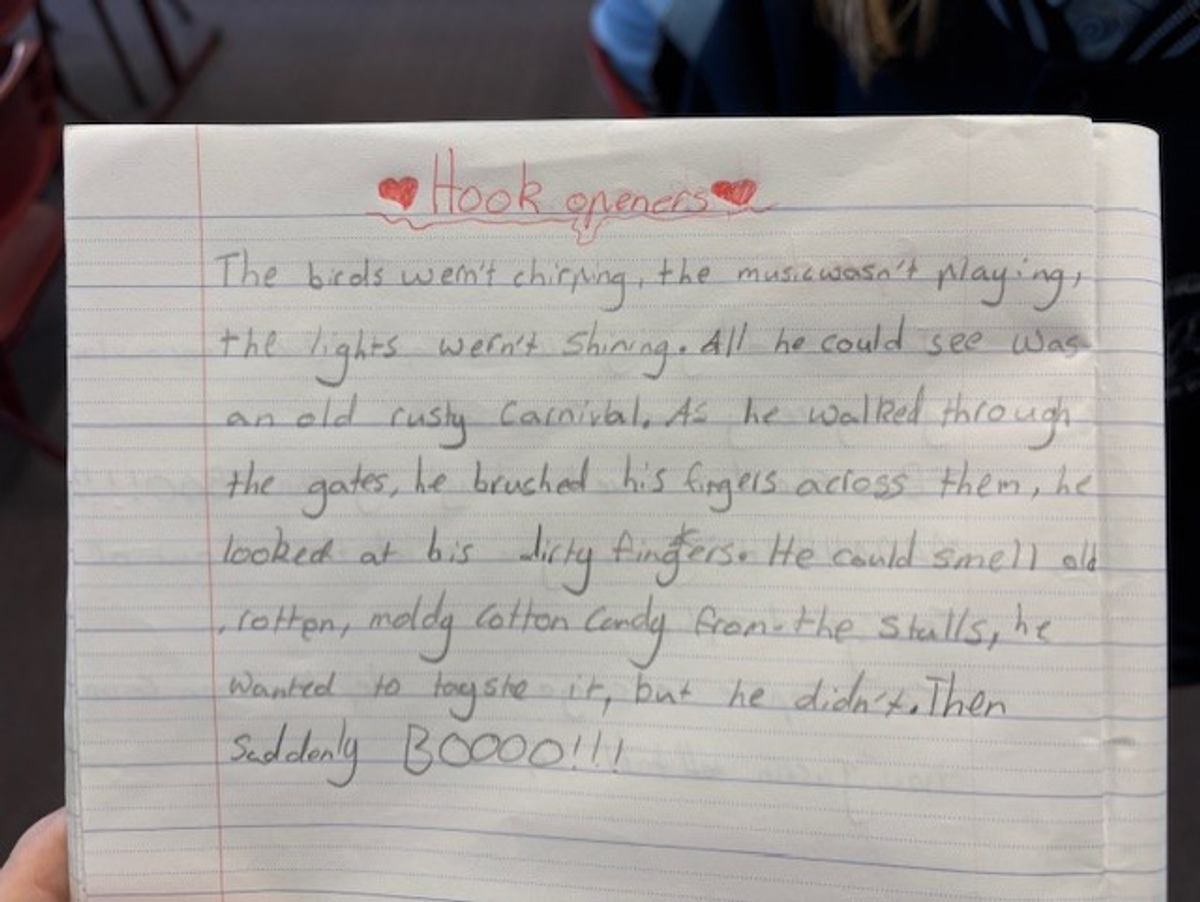 ♥Hook openers♥
The birds wern't chirping, the music wasn't playing,
the lights wern't shining. All he could see was
an old rusty Carnival. As he walked through
the gates, he brushed his fingers across them, he
looked at his dirty fingers. He could smell old
, rotten, moldy cotton Candy from the stalls, he
wanted to tayste it, but he didn't. Then
Suddenly BOOOO!!!